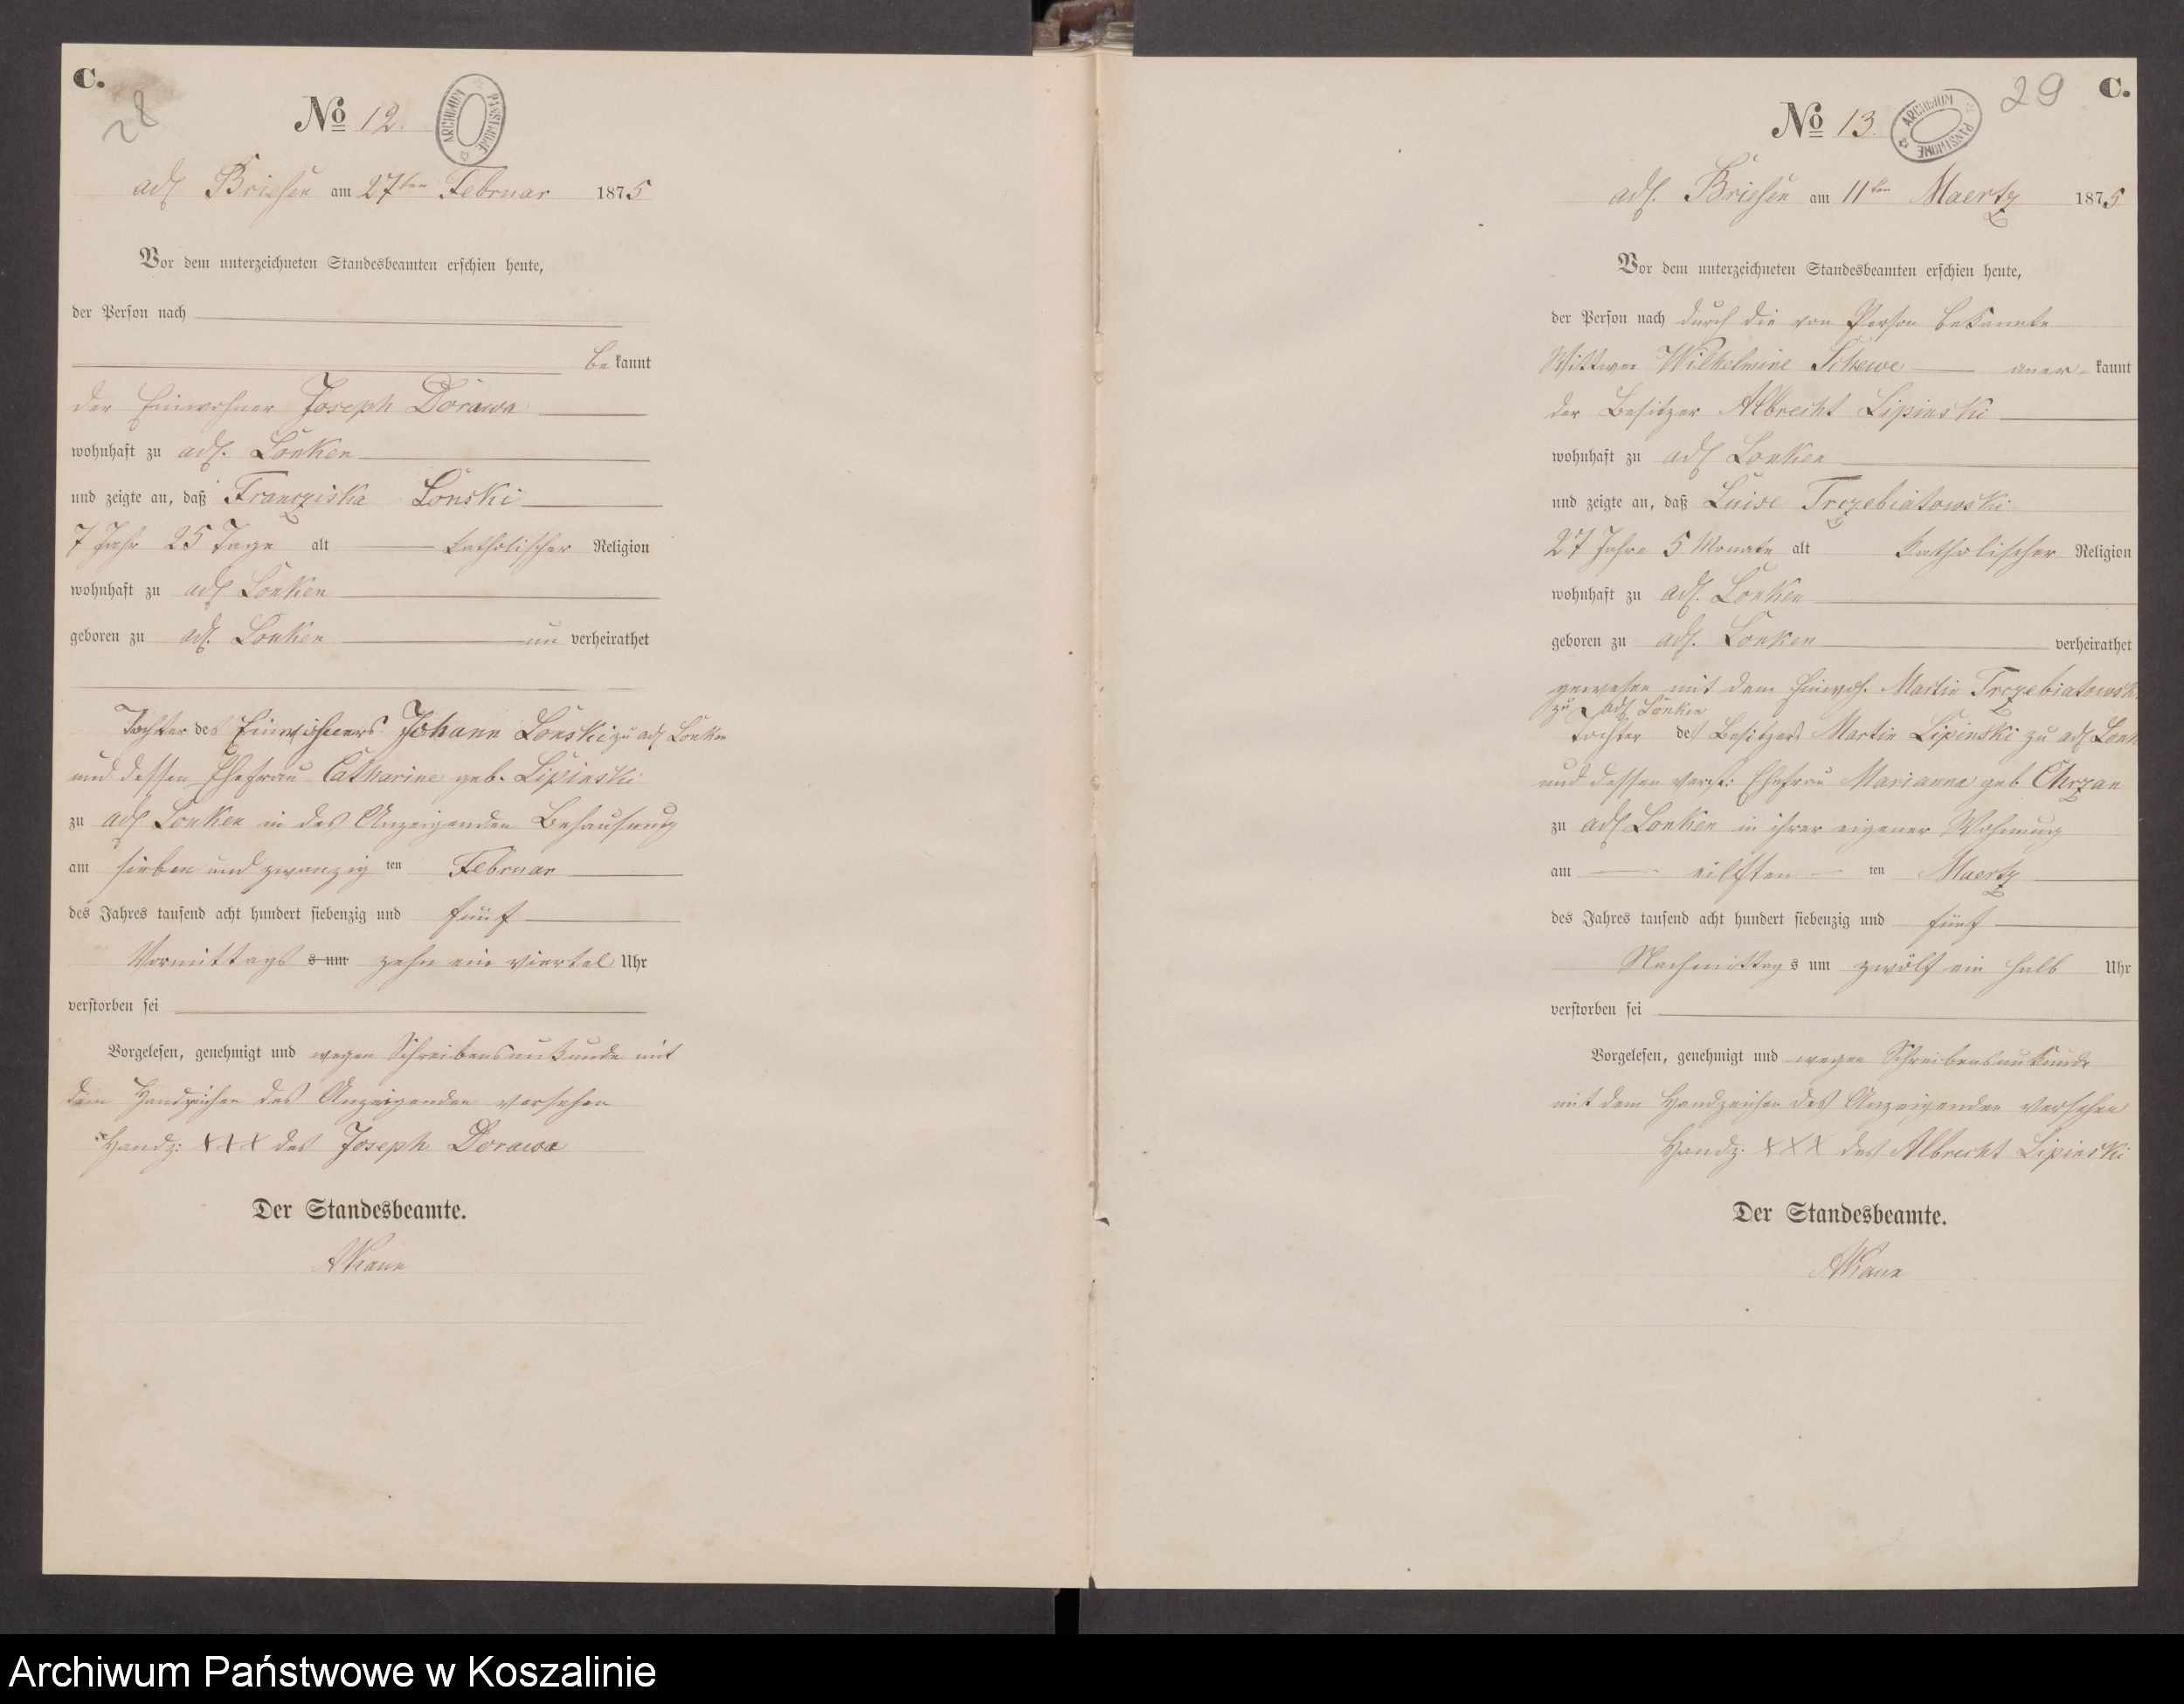 C.
28
No 12.
ARCHIWUM PAŃSTWOWE
adl Briesen am 27ten Februar 1875
Vor dem unterzeichneten Standesbeamten erschien heute,
der Person nach
be kannt
der Einwohner Joseph Dorawa
wohnhaft zu adl. Lonken
und zeigte an, daß Franzciska Lonski
7 Jahr 25 Tage alt katholischer Religion
wohnhaft zu adl Lonken
geboren zu adl. Lonken un verheirathet
Tochter des Einwohners Johann Lonski zu adl Lonken
und dessen Ehefrau Catharine geb. Lipinski
zu adl Lonken in des Anzeigenden Behausung
am sieben und zwanzig ten Februar
des Jahres tausend acht hundert siebenzig und fünf
Vormittags s um zehn ein viertel Uhr
verstorben sei
Vorgelesen, genehmigt und wegen Schreibensunkunde mit
dem Handzeichen des Anzeigenden versehen
Handz: XXX des Joseph Dorawa
Der Standesbeamte.
29
C.
No 13.
ARCHIWUM PAŃSTWOWE
adl. Briesen am 11ten Maertz 1875
Vor dem unterzeichneten Standesbeamten erschien heute,
der Person nach durch die von Person bekannte
Wittwe Wilhelmine Schewe aner- kannt
der Besitzer Albrecht Lipinski
wohnhaft zu adl Lonken
und zeigte an, daß Luise Trczebiatowski
27 Jahre 5 Monate alt katholischer Religion
wohnhaft zu adl. Lonken
geboren zu adl. Lonken verheirathet
gewesen mit dem Einwoh. Martin Trczebiatowsk
zu adl Lonken
Tochter des Besitzers Martin Lipinski zu adl Lonk
und dessen Ehefrau Marianna geb Chrzan
zu adl Lonken in ihrer eigener Wohnung
am eilften ten Maertz
des Jahres tausend acht hundert siebenzig und fünf
Nachmittag s um zwölf ein halb Uhr
verstorben sei
Vorgelesen, genehmigt und wegen Schreibensunkunde
mit dem Handzeichen des Anzeigenden versehen
Handz. XXX des Albrecht Lipinski
Der Standesbeamte.
Archiwum Państwowe w Koszalinie